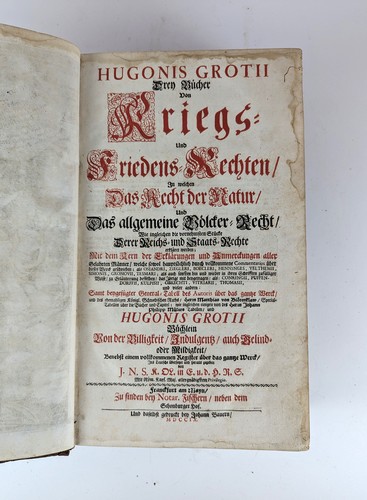 HUGONIS GROTII
Drey Bücher
Von
Kriegs-
Und
Friedens-Rechten/
In welchen
Das Recht der Natur/
Und
Das allgemeine Völcker-Recht/
Wie ingleichen die vornehmsten Stücke
Derer Reichs- und Staats-Rechte
erkläret werden;
Mit dem Kern der Erklärungen und Anmerckungen aller
Gelährten Männer/ welche sowol hauptsächlich durch vollkommene Commentarios über
dieses Werck geschrieben; als OSIANDRI, ZIEGLERI, BOECLERI, HENNINGES, VELTHEMII,
SIMONIS, GRONOVII, TESMARI; als auch sonsten hin und wieder in ihren Schrifften
THOMASII,
und vieler andern:
Samt beygefügter General-Tabell des Autoris über das gantze Werck/
Tabellen über die Bücher und Capitel; wie
Philipp Müllers Tabellen/ und
HUGONIS GROTII
Büchlein
Von der Billigkeit/ Indulgentz/ auch Gelind-
oder Mildigkeit/
Benebst einem vollkommenen Register über das gantze Werck/
J. N. S. R. OL. in E. u. d. H. R. S.
Mit Röm. Käys. Maj. allergnädigstem Privilegio.
Franckfurt am Mayn/
Zu finden bey Notar. Fischern/ neben dem
Und daselbst gedruckt bey Johann Bauern/
MDCCIX.